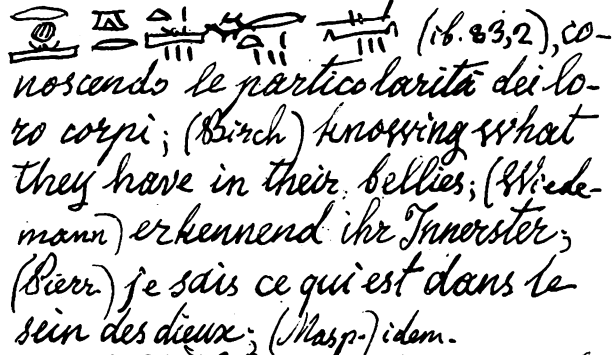 (ib. 83,2), co-
noscendo le particolarità dei lo-
ro corpi; (Birch) knowing what
they have in their bellies; (Wiede-
mann) erkennend ihr Innerster;
(Pierr.) je sais ce qui est dans le
sein des dieux; (Masp.) idem.